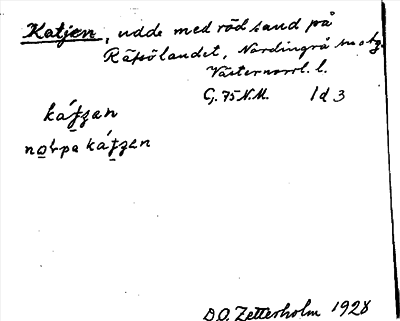 Katjen, udde med röd sand på
Räfsölandet, Nordingrå sn o tg.
Västernorrl. l.
G. 75 N.M. 1 d 3
kátzan
norpa kátzen
D.O. Zetterholm 1928